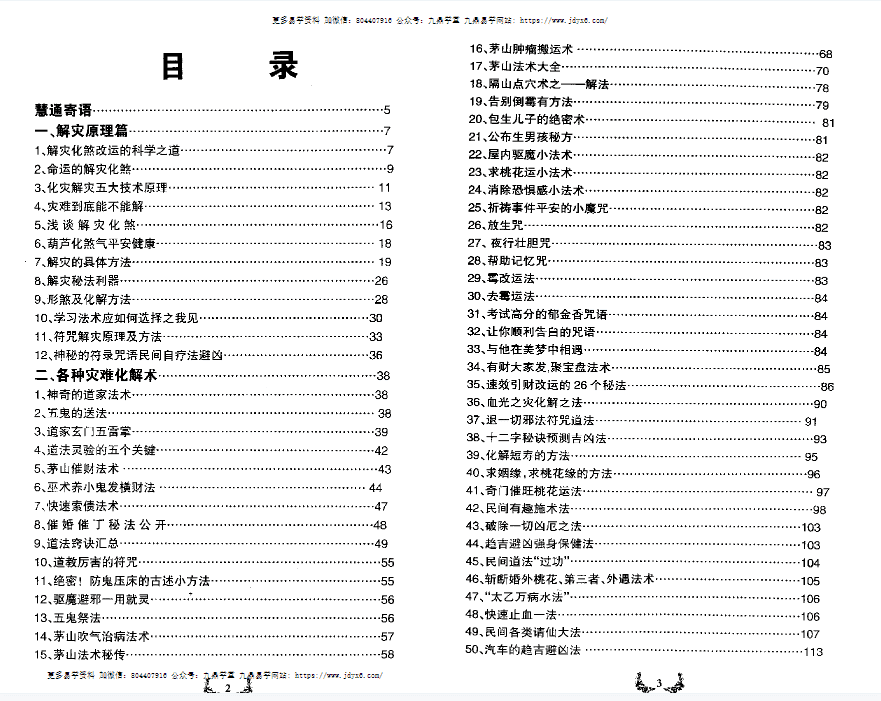 更多易学资料 加微信：804407916 公众号：九鼎学堂 九鼎易学网站：https://www.jdyx6.com/
目 录
慧通寄语……5
一、解灾原理篇……7
1、解灾化煞改运的科学之道……7
2、命运的解灾化煞……9
3、化灾解灾五大技术原理……11
4、灾难到底能不能解……13
5、浅谈解灾化煞……16
6、葫芦化煞气平安健康……18
7、解灾的具体方法……19
8、解灾秘法利器……26
9、形煞及化解方法……28
10、学习法术应如何选择之我见……30
11、符咒解灾原理及方法……33
12、神秘的符录咒语民间自疗法避凶……36
二、各种灾难化解术……38
1、神奇的道家法术……38
2、五鬼的送法……38
3、道家玄门五雷掌……39
4、道法灵验的五个关键……42
5、茅山催财法术……43
6、巫术养小鬼发横财法……44
7、快速索债法术……47
8、催婚催丁秘法公开……48
9、道法窍诀汇总……49
10、道教厉害的符咒……55
11、绝密！防鬼压床的古述小方法……55
12、驱魔避邪一用就灵……56
13、五鬼祭法……56
14、茅山吹气治病法术……57
15、茅山法术秘传……58
更多易学资料 加微信：804407916 公众号：九鼎学堂 九鼎易学网站：https://www.jdyx6.com/
2
16、茅山肿瘤搬运术……68
17、茅山法术大全……70
18、隔山点穴术之——解法……78
19、告别倒霉有方法……79
20、包生儿子的绝密术……81
21、公布生男孩秘方……81
22、屋内驱魔小法术……82
23、求桃花运小法术……82
24、消除恐惧感小法术……82
25、祈祷事件平安的小魔咒……82
26、放生咒……82
27、夜行壮胆咒……83
28、帮助记忆咒……83
29、霉改运法……83
30、去霉运法……84
31、考试高分的郁金香咒语……84
32、让你顺利告白的咒语……84
33、与他在美梦中相遇……84
34、有财大家发，聚宝盘法术……85
35、速效引财改运的26个秘法……86
36、血光之灾化解之法……90
37、退一切邪法符咒道法……91
38、十二字秘诀预测吉凶法……93
39、化解短寿的方法……95
40、求姻缘，求桃花缘的方法……96
41、奇门催旺桃花运法……97
42、民间有趣施术法……98
43、破除一切凶厄之法……103
44、趋吉避凶强身保健法……103
45、民间道法“过功”……104
46、斩断婚外桃花、第三者、外遇法术……105
47、“太乙万病水法”……106
48、快速止血一法……106
49、民间各类请仙大法……107
50、汽车的趋吉避凶法……113
3